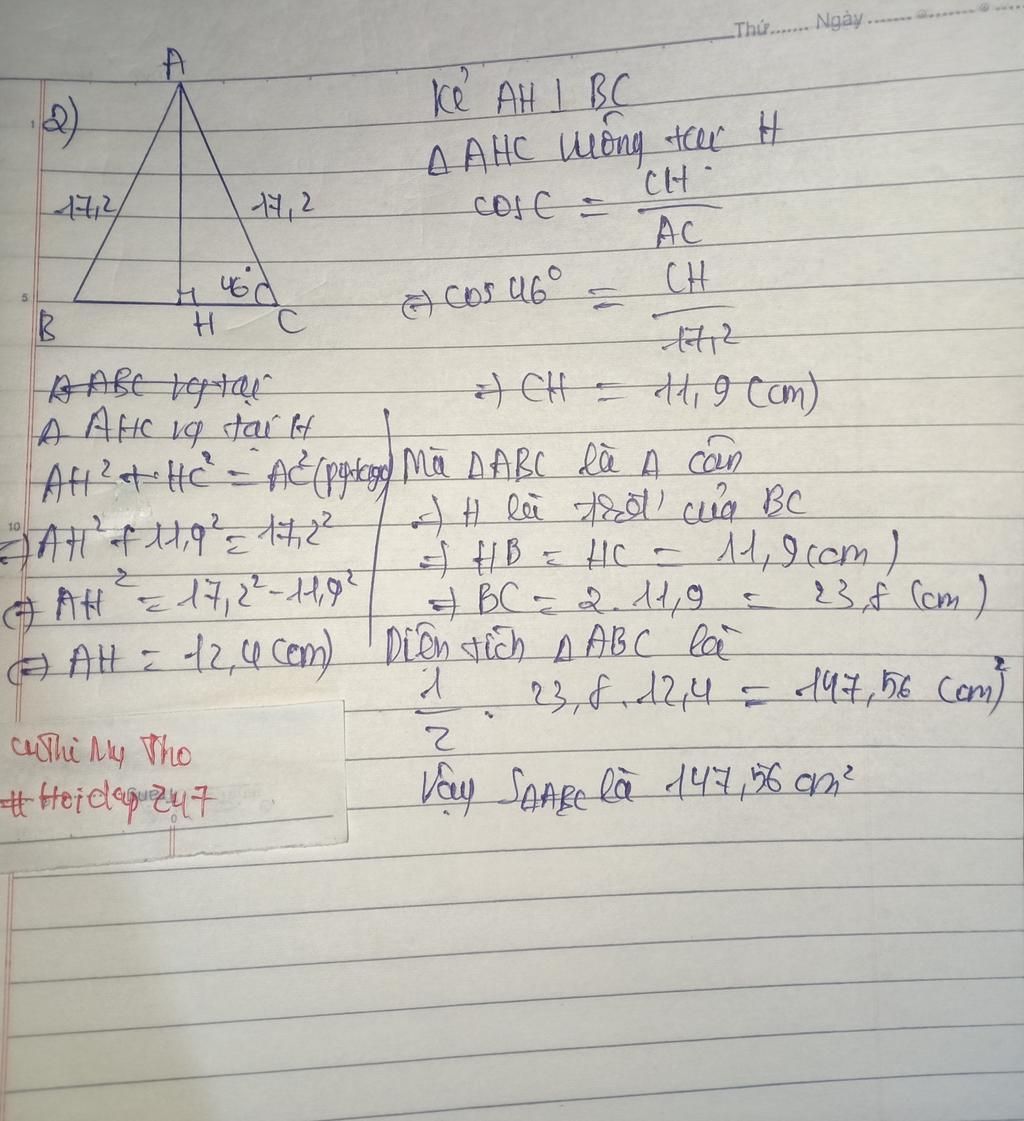 Thứ....... Ngày
2)
A
17,2
17,2
46°
B
H
C
Kẻ AH ⊥ BC
Δ AHC vuông tại H
cos C = CH / AC
⇒ cos 46° = CH / 17,2
⇒ CH = 11,9 (cm)
Δ ABC vg tại
Δ AHC vg tại H
AH² + HC² = AC² (pytago)
⇒ AH² + 11,9² = 17,2²
⇒ AH² = 17,2² - 11,9²
⇒ AH = 12,4 (cm)
Mà Δ ABC là Δ cân
⇒ H là của BC
⇒ HB = HC = 11,9 (cm)
⇒ BC = 2 . 11,9 = 23,8 (cm)
Diện tích Δ ABC là
1/2 . 23,8 . 12,4 = 147,56 (cm²)
Vậy SΔABC là 147,56 cm²
Thi Mỹ Tho
#Hoidap247
1
5
10